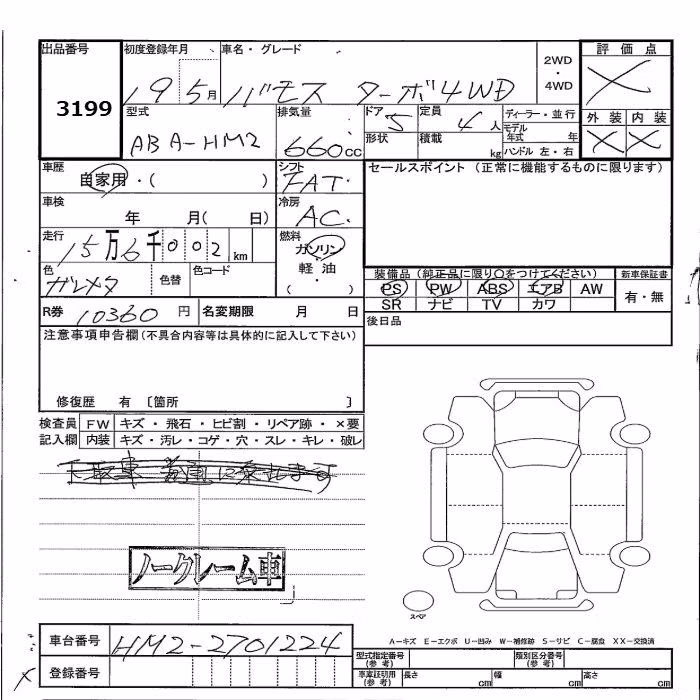 出品番号 3199
初度登録年月 19 5月
車名・グレード バモス ターボ4WD
2WD・4WD
評価点 X
外装 X 内装 X
型式 ABA-HM2
排気量 660cc
ドア 5 形状
定員 4人 積載 kg
ディーラー・並行
モデル年式 年
ハンドル 左・右
車歴 自家用・( )
シフト FAT
セールスポイント (正常に機能するものに限ります)
車検 年 月( 日)
冷房 AC
走行 15万6千002km
燃料 ガソリン・軽油・( )
色 ガンメタ 色替 色コード
装備品 (純正品に限り○をつけてください)
PS PW ABS エアB AW
SR ナビ TV カワ
新車保証書 有・無
R券 10360円
名変期限 月 日
後日品
注意事項申告欄(不具合内容等は具体的に記入して下さい)
修復歴 有 〔箇所 〕
検査員記入欄
FW キズ・飛石・ヒビ割・リペア跡・×要
内装 キズ・汚レ・コゲ・穴・スレ・キレ・破レ
ノークレーム車
スペア
A-キズ E-エクボ U-凹み W-補修跡 S-サビ C-腐食 XX-交換済
車台番号 HM2-2701224
登録番号
型式指定番号(参考) 類別区分番号(参考)
車庫証明用(参考) 長さ cm 幅 cm 高さ cm